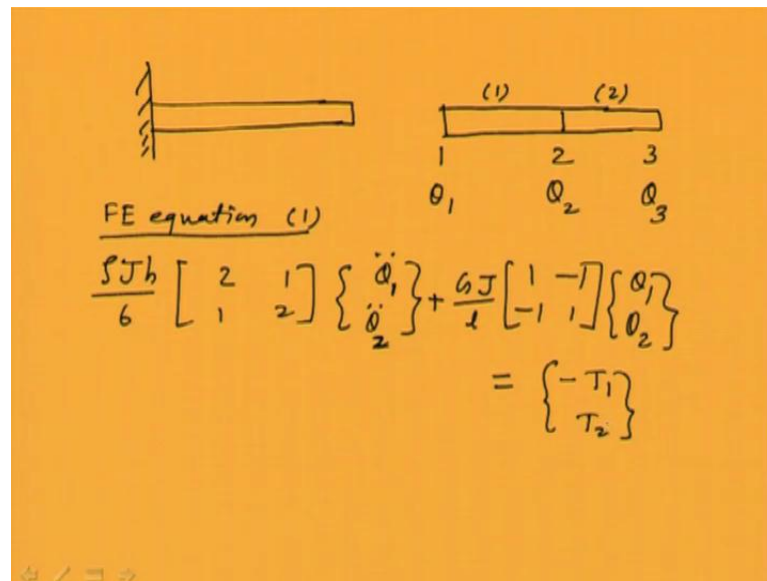 (1) (2)
1 2 3
θ₁ θ₂ θ₃
FE equation (1)
ρJh/6 [2 1; 1 2] {θ̈₁; θ̈₂} + GJ/l [1 -1; -1 1] {θ₁; θ₂}
= {-T₁; T₂}